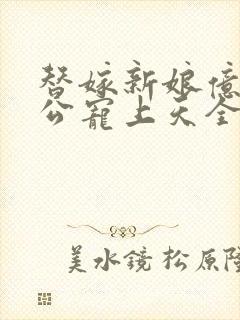 替嫁新娘億
公寵上天全
美水鏡 松原隆